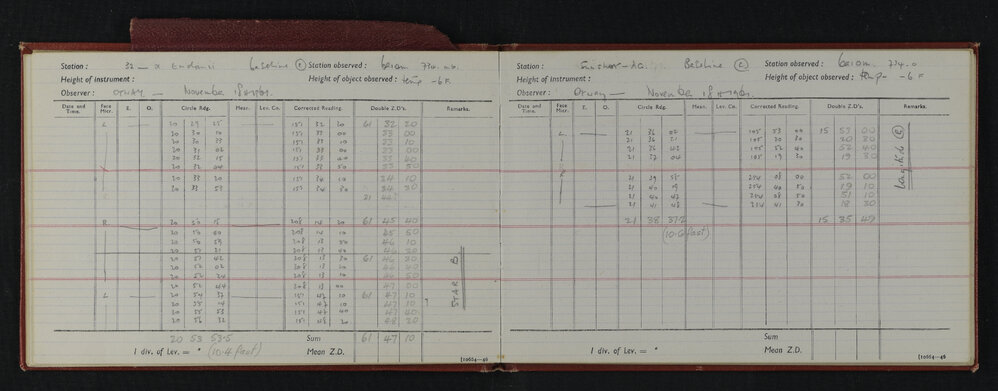 Station : 32 – α Eridani Baseline (E) Station observed : barom 734. mb.
Height of instrument : Height of object observed : temp -6 F
Observer : OTWAY — November 18th 1961.
Date and Time. Face Micr. E. O. Circle Rdg. Mean. Lev. Co. Corrected Reading. Double Z.D's. Remarks.
L 20 29 25 151 32 20 61 32 20
20 30 10 151 33 00 33 00
20 30 33 151 33 10 33 10
20 31 02 151 33 00 33 00
20 32 15 151 33 40 33 40
20 32 04 151 33 50 33 50
20 33 20 151 34 10 34 10
20 33 53 151 34 20 34 20
R 20 50 15 208 14 20 61 45 40
20 50 40 208 14 10 45 50
20 50 59 208 13 50 46 10
20 51 21 208 13 40 46 20
20 51 42 208 13 30 61 46 30
20 52 02 208 13 20 46 40
20 52 24 208 13 10 46 50
20 52 44 208 13 00 47 00
L 20 54 37 151 47 10 61 47 10
20 55 14 151 47 10 47 10
20 55 53 151 47 40 47 40
20 56 32 151 48 20 48 20
STAR B
20 53 53.5 Sum 61 47 10
1 div. of Lev. = " (10.4 fast) Mean Z.D.
[10664—46
Station : Baseline (E) Station observed : barom 734.0
Height of instrument : Height of object observed : temp -6 F
Observer : Otway — November 18th 1961.
Date and Time. Face Micr. E. O. Circle Rdg. Mean. Lev. Co. Corrected Reading. Double Z.D's. Remarks.
L 21 36 02 105 53 00 15 53 00
21 36 21 105 20 30 20 30
21 36 42 105 52 40 52 40
21 37 04 105 19 30 19 30
R 21 39 58 254 08 00 52 00
21 40 19 254 40 50 19 10
21 40 47 254 08 50 51 10
21 41 48 254 41 30 18 30
21 38 37.2 15 35 49
(10.6 fast)
Longitude (E)
Sum
1 div. of Lev. = " Mean Z.D.
[10664—46